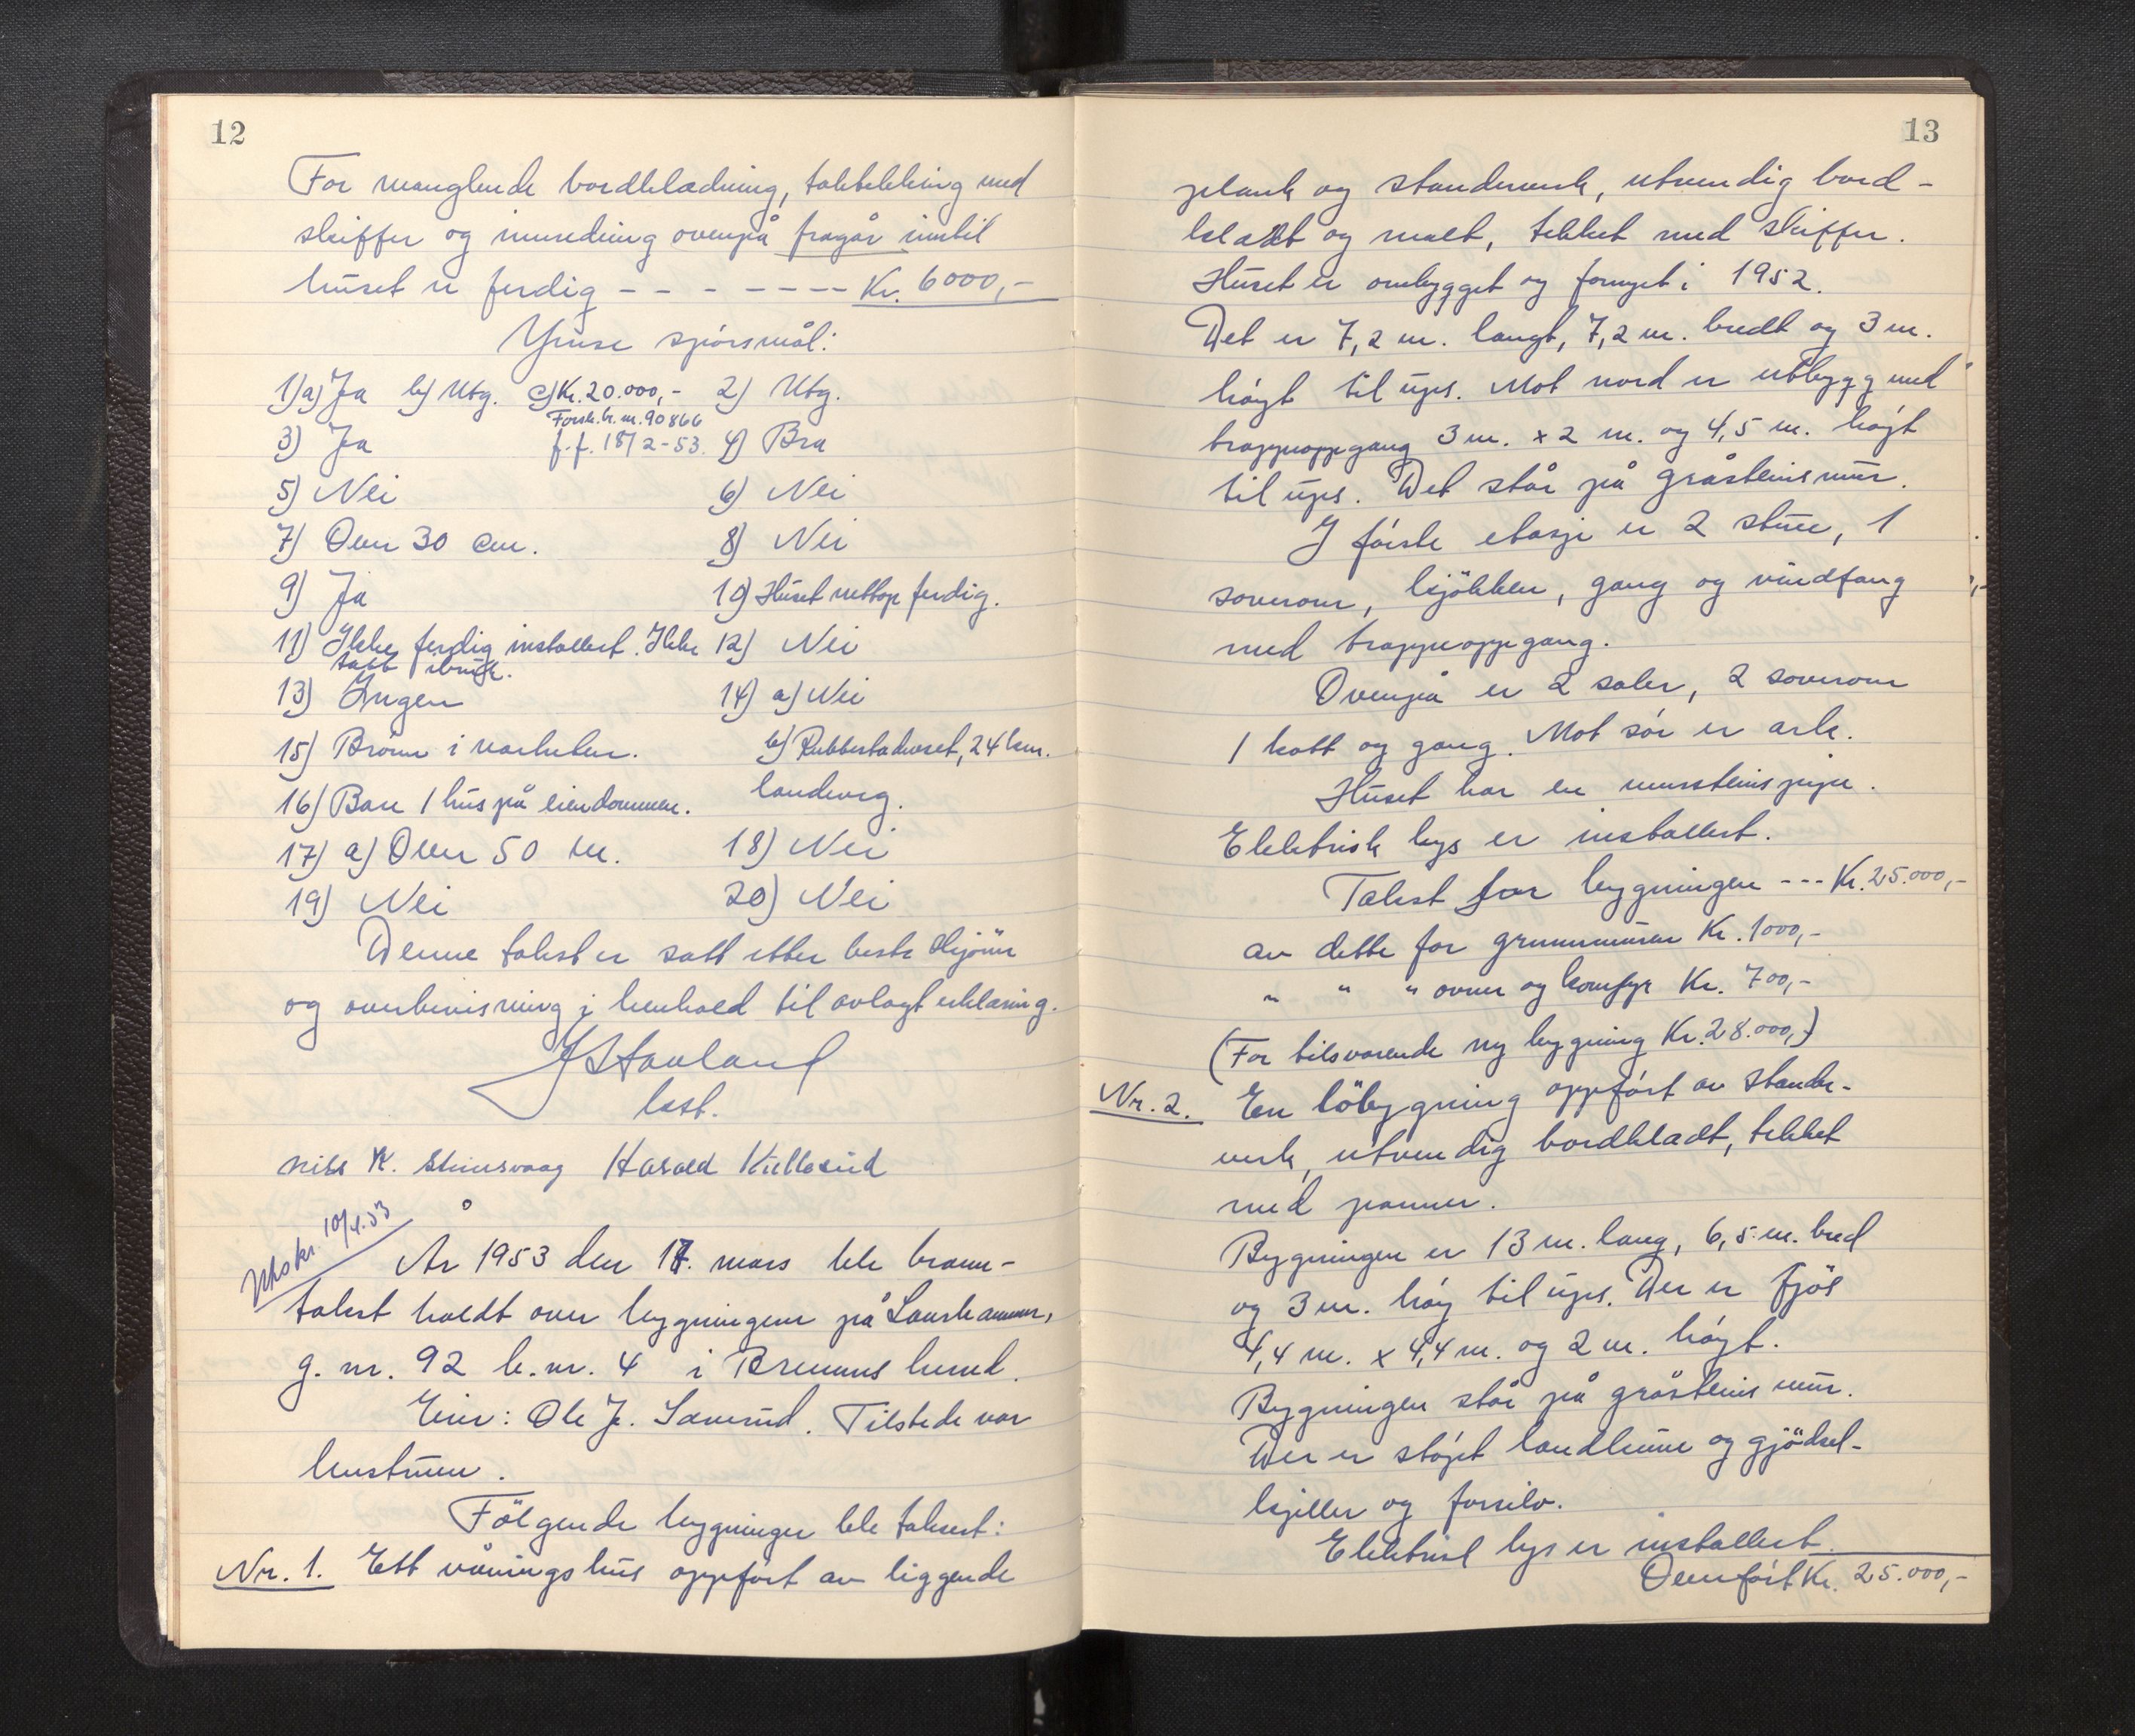 12
For manglende bordklædning, taktekking med
skiffer og innredning ovenpå fragår inntil
huset er ferdig - - - - - - - Kr. 6000,-
Ymse spörsmål:
1) a) Ja b) Utg. c) Kr. 20.000,- 2) Utg.
Forsk.br.nr. 90866
3) Ja f.f. 18/2-53. 4) Bra
5) Nei 6) Nei
7) Over 30 cm. 8) Nei
9) Ja 10) Huset nettop ferdig.
11) Ikke ferdig installert. Ikke 12) Nei
tatt ibruk.
13) Ingen 14) a) Nei
15) Brönn i nærheten. b) Rubbestadneset, 24 km.
16) Bare 1 hus på eiendommen. landveg.
17) a) Over 50 m. 18) Nei
19) Nei 20) Nei
Denne takst er satt etter beste skjönn
og overbevisning i henhold til avlagt erklæring.
J Stauland
lest.
Nils K. Steinsvaag Harald Kulleseid
Utskr. 10/4.53
År 1953 den 17. mars ble brann-
takst holdt over bygningene på Laukhammer,
g. nr. 92 b. nr. 4 i Bremnes herred.
Eier: Ole J. Lønerud. Tilstede var
hustruen.
Fölgende bygninger ble taksert:
Nr. 1. Ett våningshus oppfört av liggende
13
plank og standerverk, utvendig bord-
kledt og malt, tekket med skiffer.
Huset er ombygget og fornyet i 1952.
Det er 7,2 m. langt, 7,2 m. bredt og 3 m.
höyt til ups. Mot nord er utbygg med
trappeoppgang 3 m. x 2 m. og 4,5 m. höyt
til ups. Det står på gråsteinsmur.
I förste etasje er 2 stuer, 1
soverom, kjökken, gang og vindfang
med trappeoppgang.
Ovenpå er 2 saler, 2 soverom
1 kott og gang. Mot sör er ark.
Huset har en mursteinspipe.
Elektrisk lys er installert.
Takst for bygningen --- Kr. 25.000,-
av dette for grunnmuren Kr. 1000,-
" " " ovner og komfyr Kr. 700,-
(For tilsvarende ny bygning Kr. 28.000,-)
Nr. 2. En löbygning oppfört av stander-
verk, utvendig bordkladt, tekket
med panner.
Bygningen er 13 m. lang, 6,5 m. bred
og 3 m. höy til ups. Der er fjös
4,4 m. x 4,4 m. og 2 m. höyt.
Bygningen står på gråsteinsmur.
Der er stöpt landkum og gjödsel-
kjeller og forsilo.
Elektrisk lys er installert.
Overfört Kr. 25.000,-